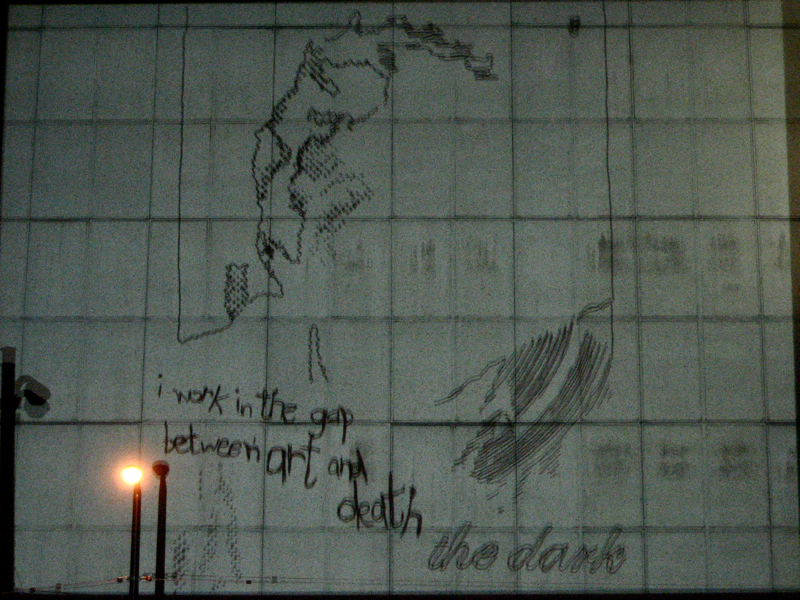 i work in the gap
between art and
death
the dark